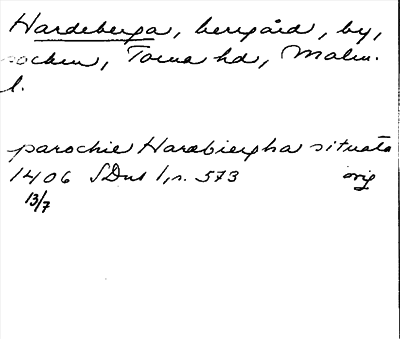 Hardeberga, herrgård, by,
socken, Torna hd, Malm.
l.
parochie Hardbiergha situata
1406 SDns 1, s. 573 orig
13/7